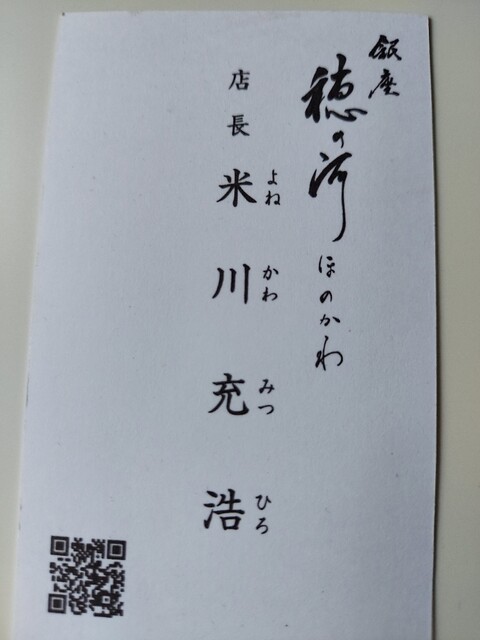 銀座
穂の河
ほのかわ
店長
米川充浩
よねかわみつひろ